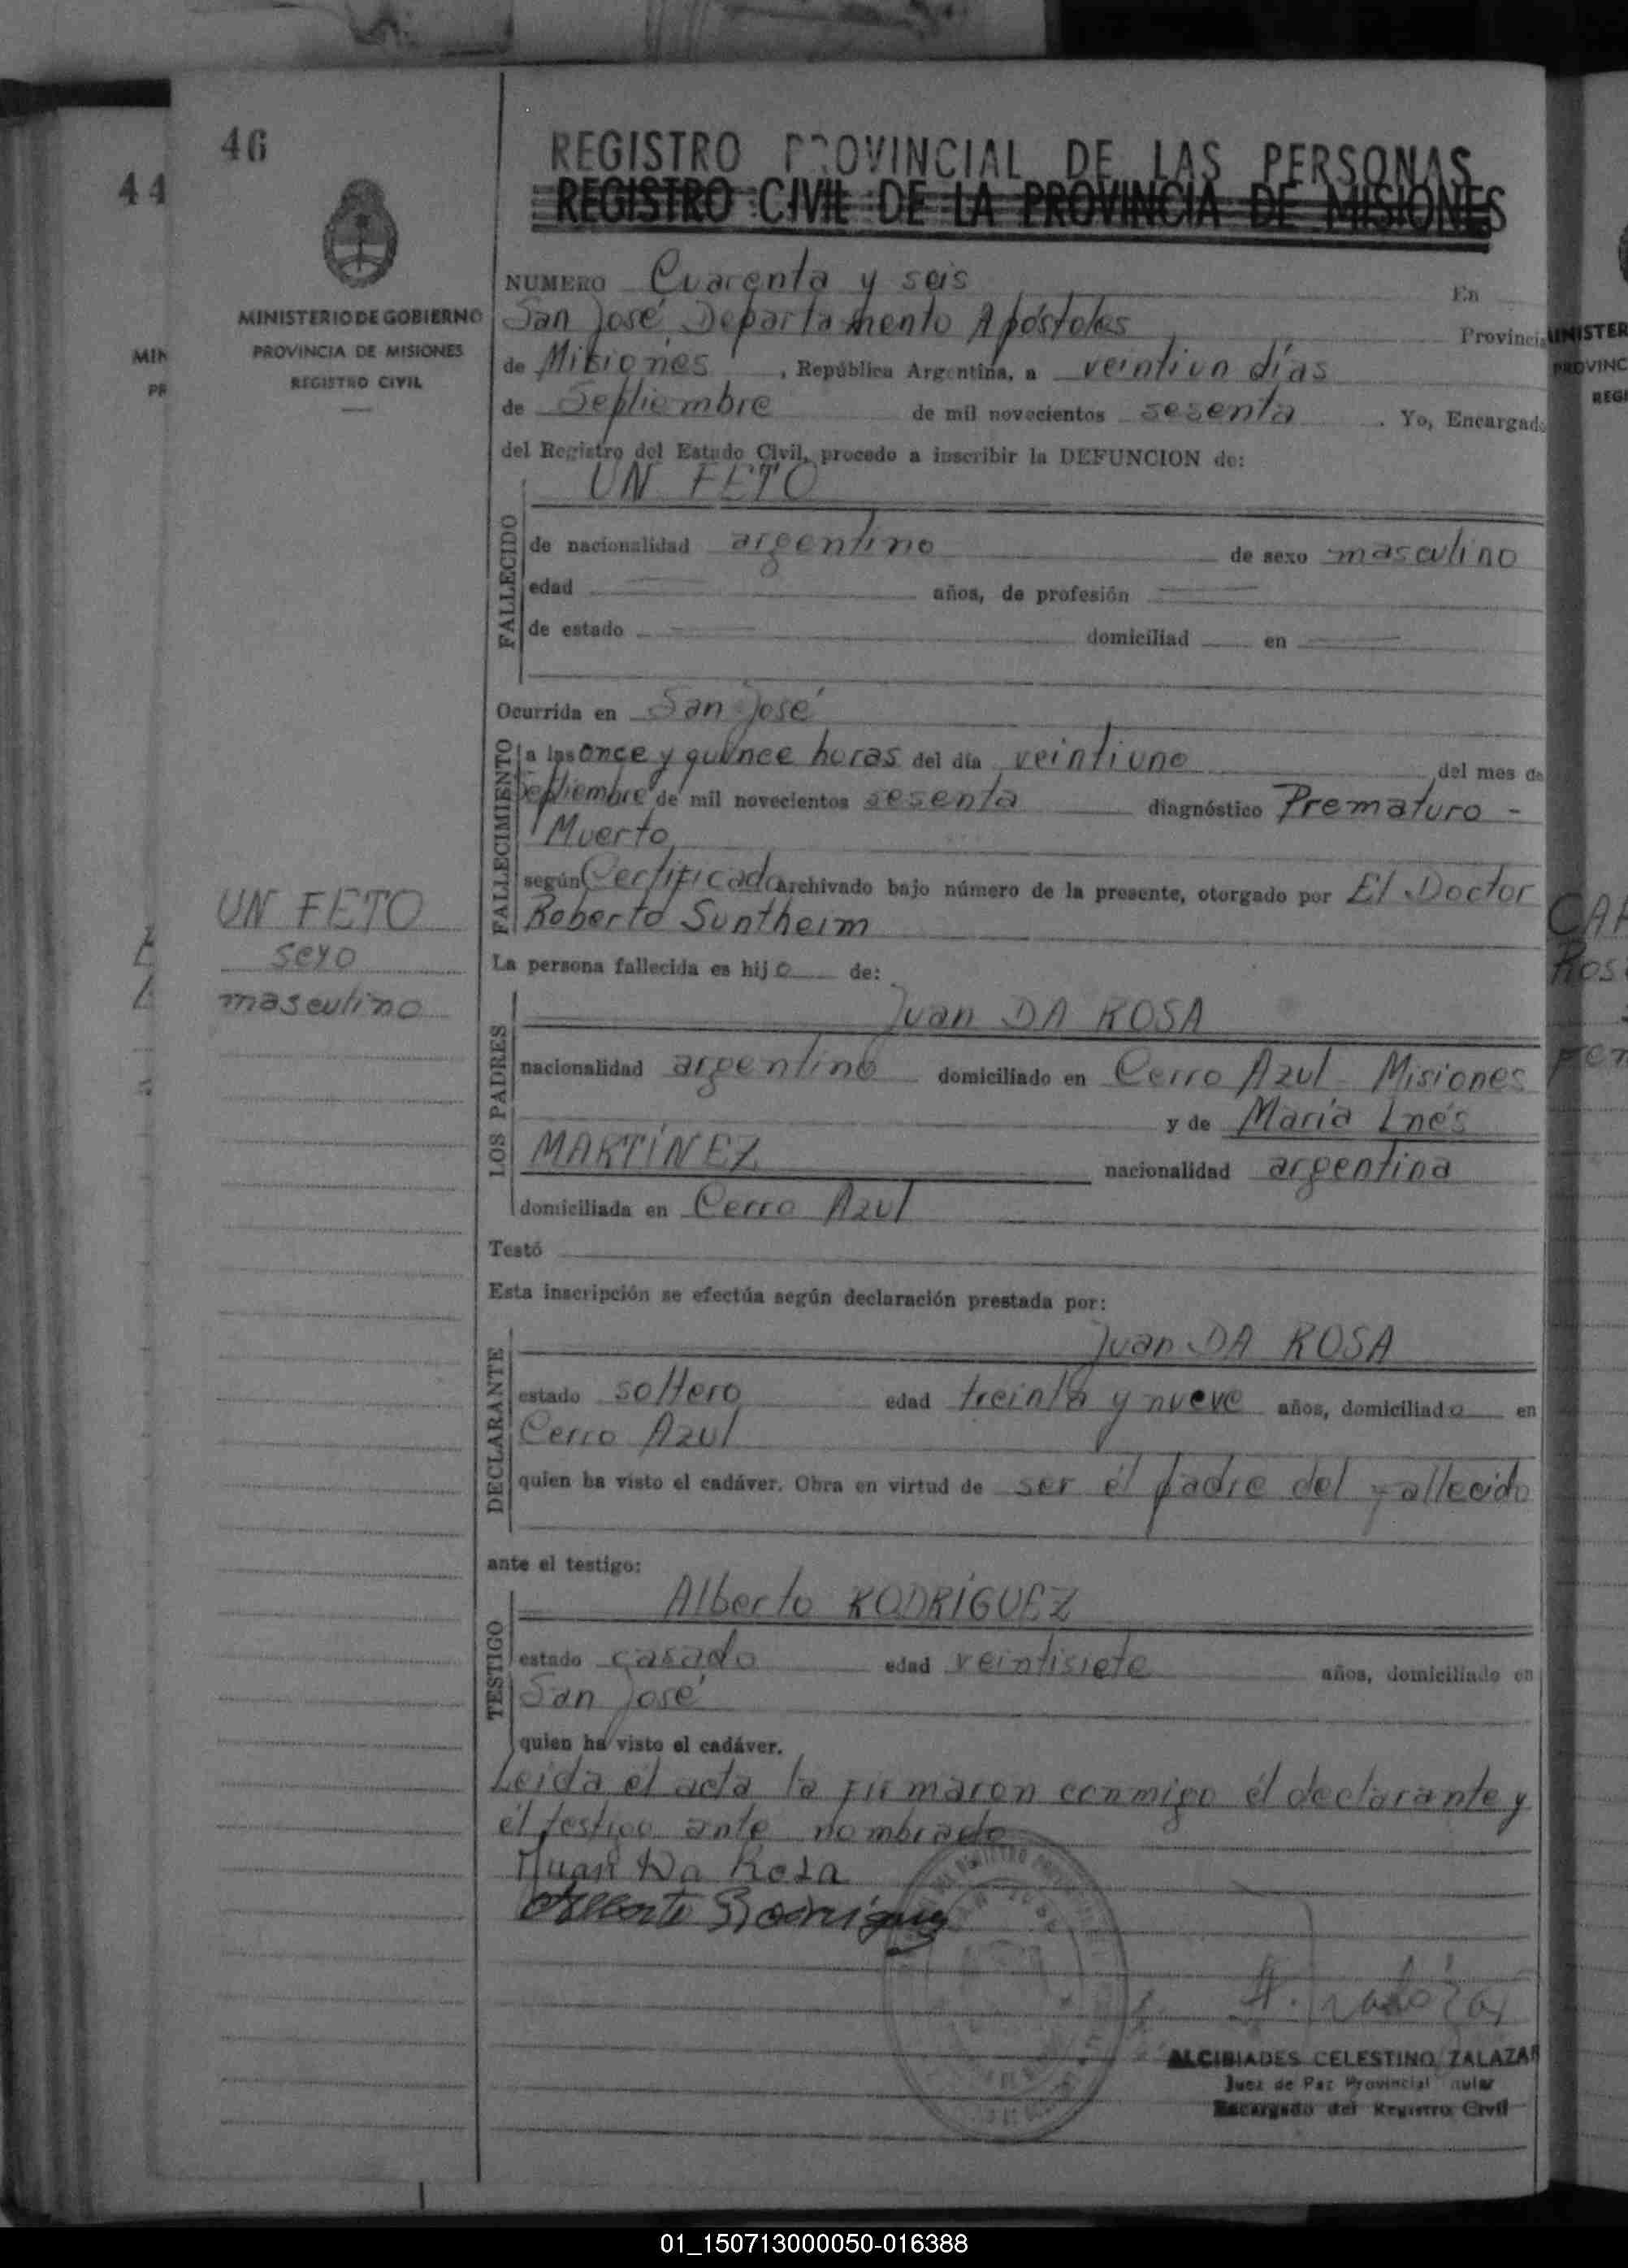 46
44
REGISTRO PROVINCIAL DE LAS PERSONAS
REGISTRO CIVIL DE LA PROVINCIA DE MISIONES
MINISTERIO DE GOBIERNO
PROVINCIA DE MISIONES
REGISTRO CIVIL
UN FETO
sexo
masculino
NUMERO Cuarenta y seis En
San José Departamento Apóstoles Provincia
de Misiones, República Argentina, a veintiun días
de Septiembre de mil novecientos sesenta. Yo, Encargado
del Registro del Estado Civil, procedo a inscribir la DEFUNCION de:
FALLECIDO
UN FETO
de nacionalidad argentino de sexo masculino
edad años, de profesión
de estado domiciliad en
Ocurrida en San José
FALLECIMIENTO
a las once y quince horas del día veintiuno del mes de
Septiembre de mil novecientos sesenta diagnóstico Prematuro -
Muerto
según Certificado archivado bajo número de la presente, otorgado por El Doctor
Roberto Suntheim
La persona fallecida es hijo de:
LOS PADRES
Juan DA ROSA
nacionalidad argentino domiciliado en Cerro Azul - Misiones
y de María Inés
MARTÍNEZ nacionalidad argentina
domiciliada en Cerro Azul
Testó
Esta inscripción se efectúa según declaración prestada por:
DECLARANTE
Juan DA ROSA
estado soltero edad treinta y nueve años, domiciliado en
Cerro Azul
quien ha visto el cadáver. Obra en virtud de ser él padre del fallecido
ante el testigo:
TESTIGO
Alberto RODRÍGUEZ
estado casado edad veintisiete años, domiciliado en
San José
quien ha visto el cadáver.
Leida el acta la firmaron conmigo él declarante y
él testigo ante nombrado
Juan Da Rosa
Alberto Rodriguez
ALCIBIADES CELESTINO ZALAZAR
Juez de Paz Provincial
Encargado del Registro Civil
01_150713000050-016388